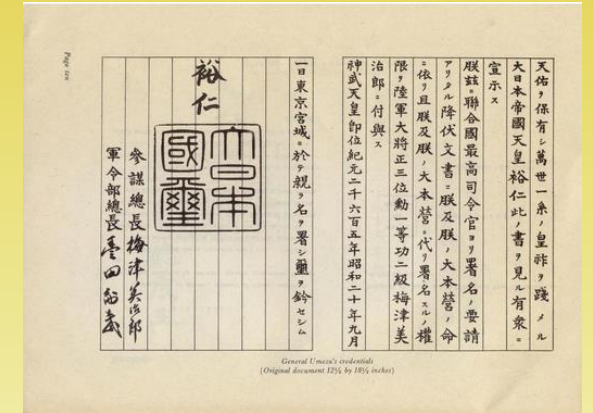 Page ten
天佑ヲ保有シ萬世一系ノ皇祚ヲ踐メル
大日本帝國天皇裕仁此ノ書ヲ見ル有衆ニ
宣示ス
朕茲ニ聯合國最高司令官ヨリ署名ノ要請
アリタル降伏文書ニ朕及朕ノ大本營ノ命
ニ依リ且朕及朕ノ大本營ニ代リ署名スルノ權
限ヲ陸軍大將正三位勳一等功二級梅津美
治郎ニ付與ス
神武天皇卽位紀元二千六百五年昭和二十年九月
一日東京宮城ニ於テ親ラ名ヲ署シ璽ヲ鈐セシム
裕仁
大日本
國璽
參謀總長梅津美治郎
軍令部總長豊田副武
General Umezu's credentials
(Original document 12¼ by 18¼ inches)